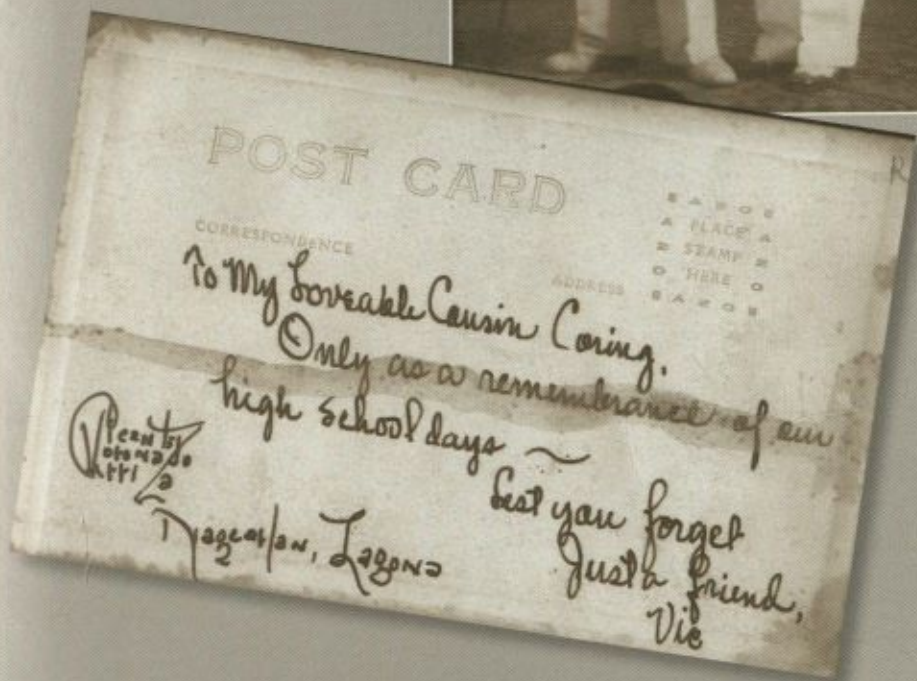 POST CARD
CORRESPONDENCE
AZO
PLACE
STAMP
HERE
ADDRESS
To My Loveable Cousin Coring.
Only as a remembrance of our
high school days ~
Lest you forget
Just a friend,
Vic
Nagcarlan, Laguna